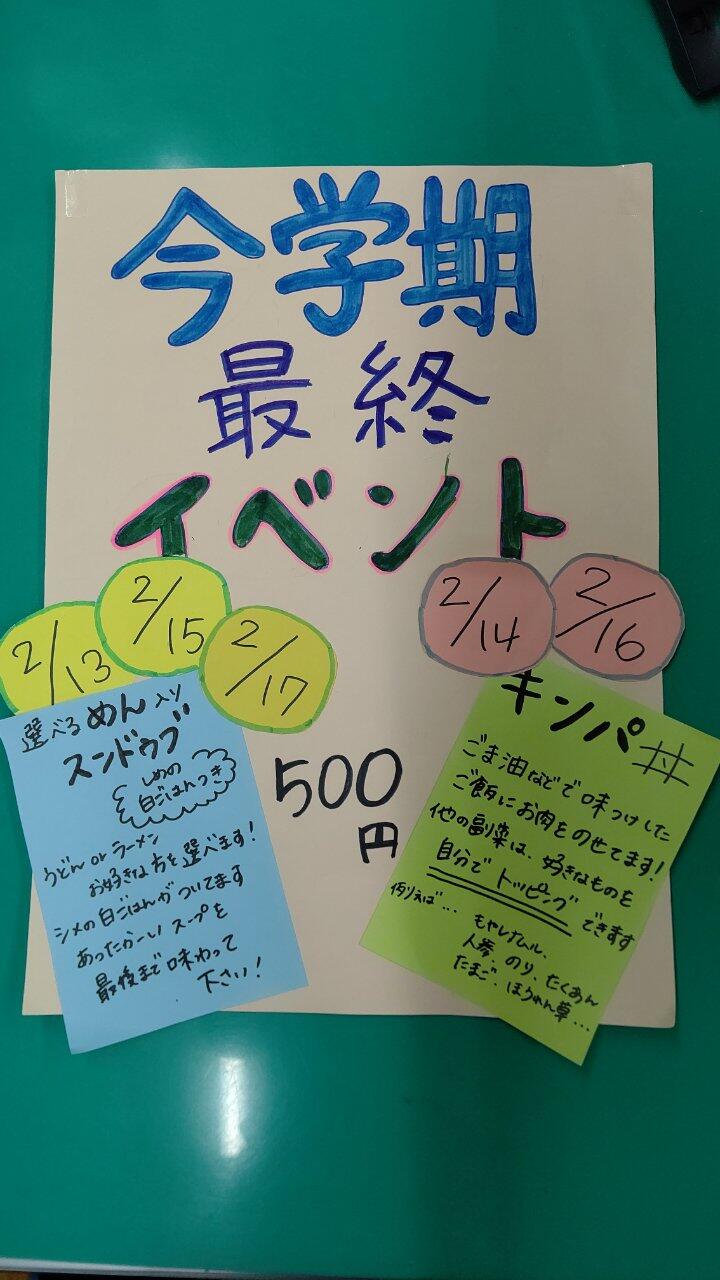 今学期
最終
イベント
2/13
2/15
2/17
選べる めん入り
スンドゥブ
しめの
白ごはんつき
うどん or ラーメン
お好きな方を選べます!
シメの白ごはんがついてます
あったかーい スープを
最後まで味わって
下さい!
500
円
2/14
2/16
キンパ丼
ごま油などで味つけした
ご飯にお肉をのせてます!
他の副菜は、好きなものを
自分で トッピング できます
例えば… もやしナムル、
人参、のり、たくあん
たまご、ほうれん草…